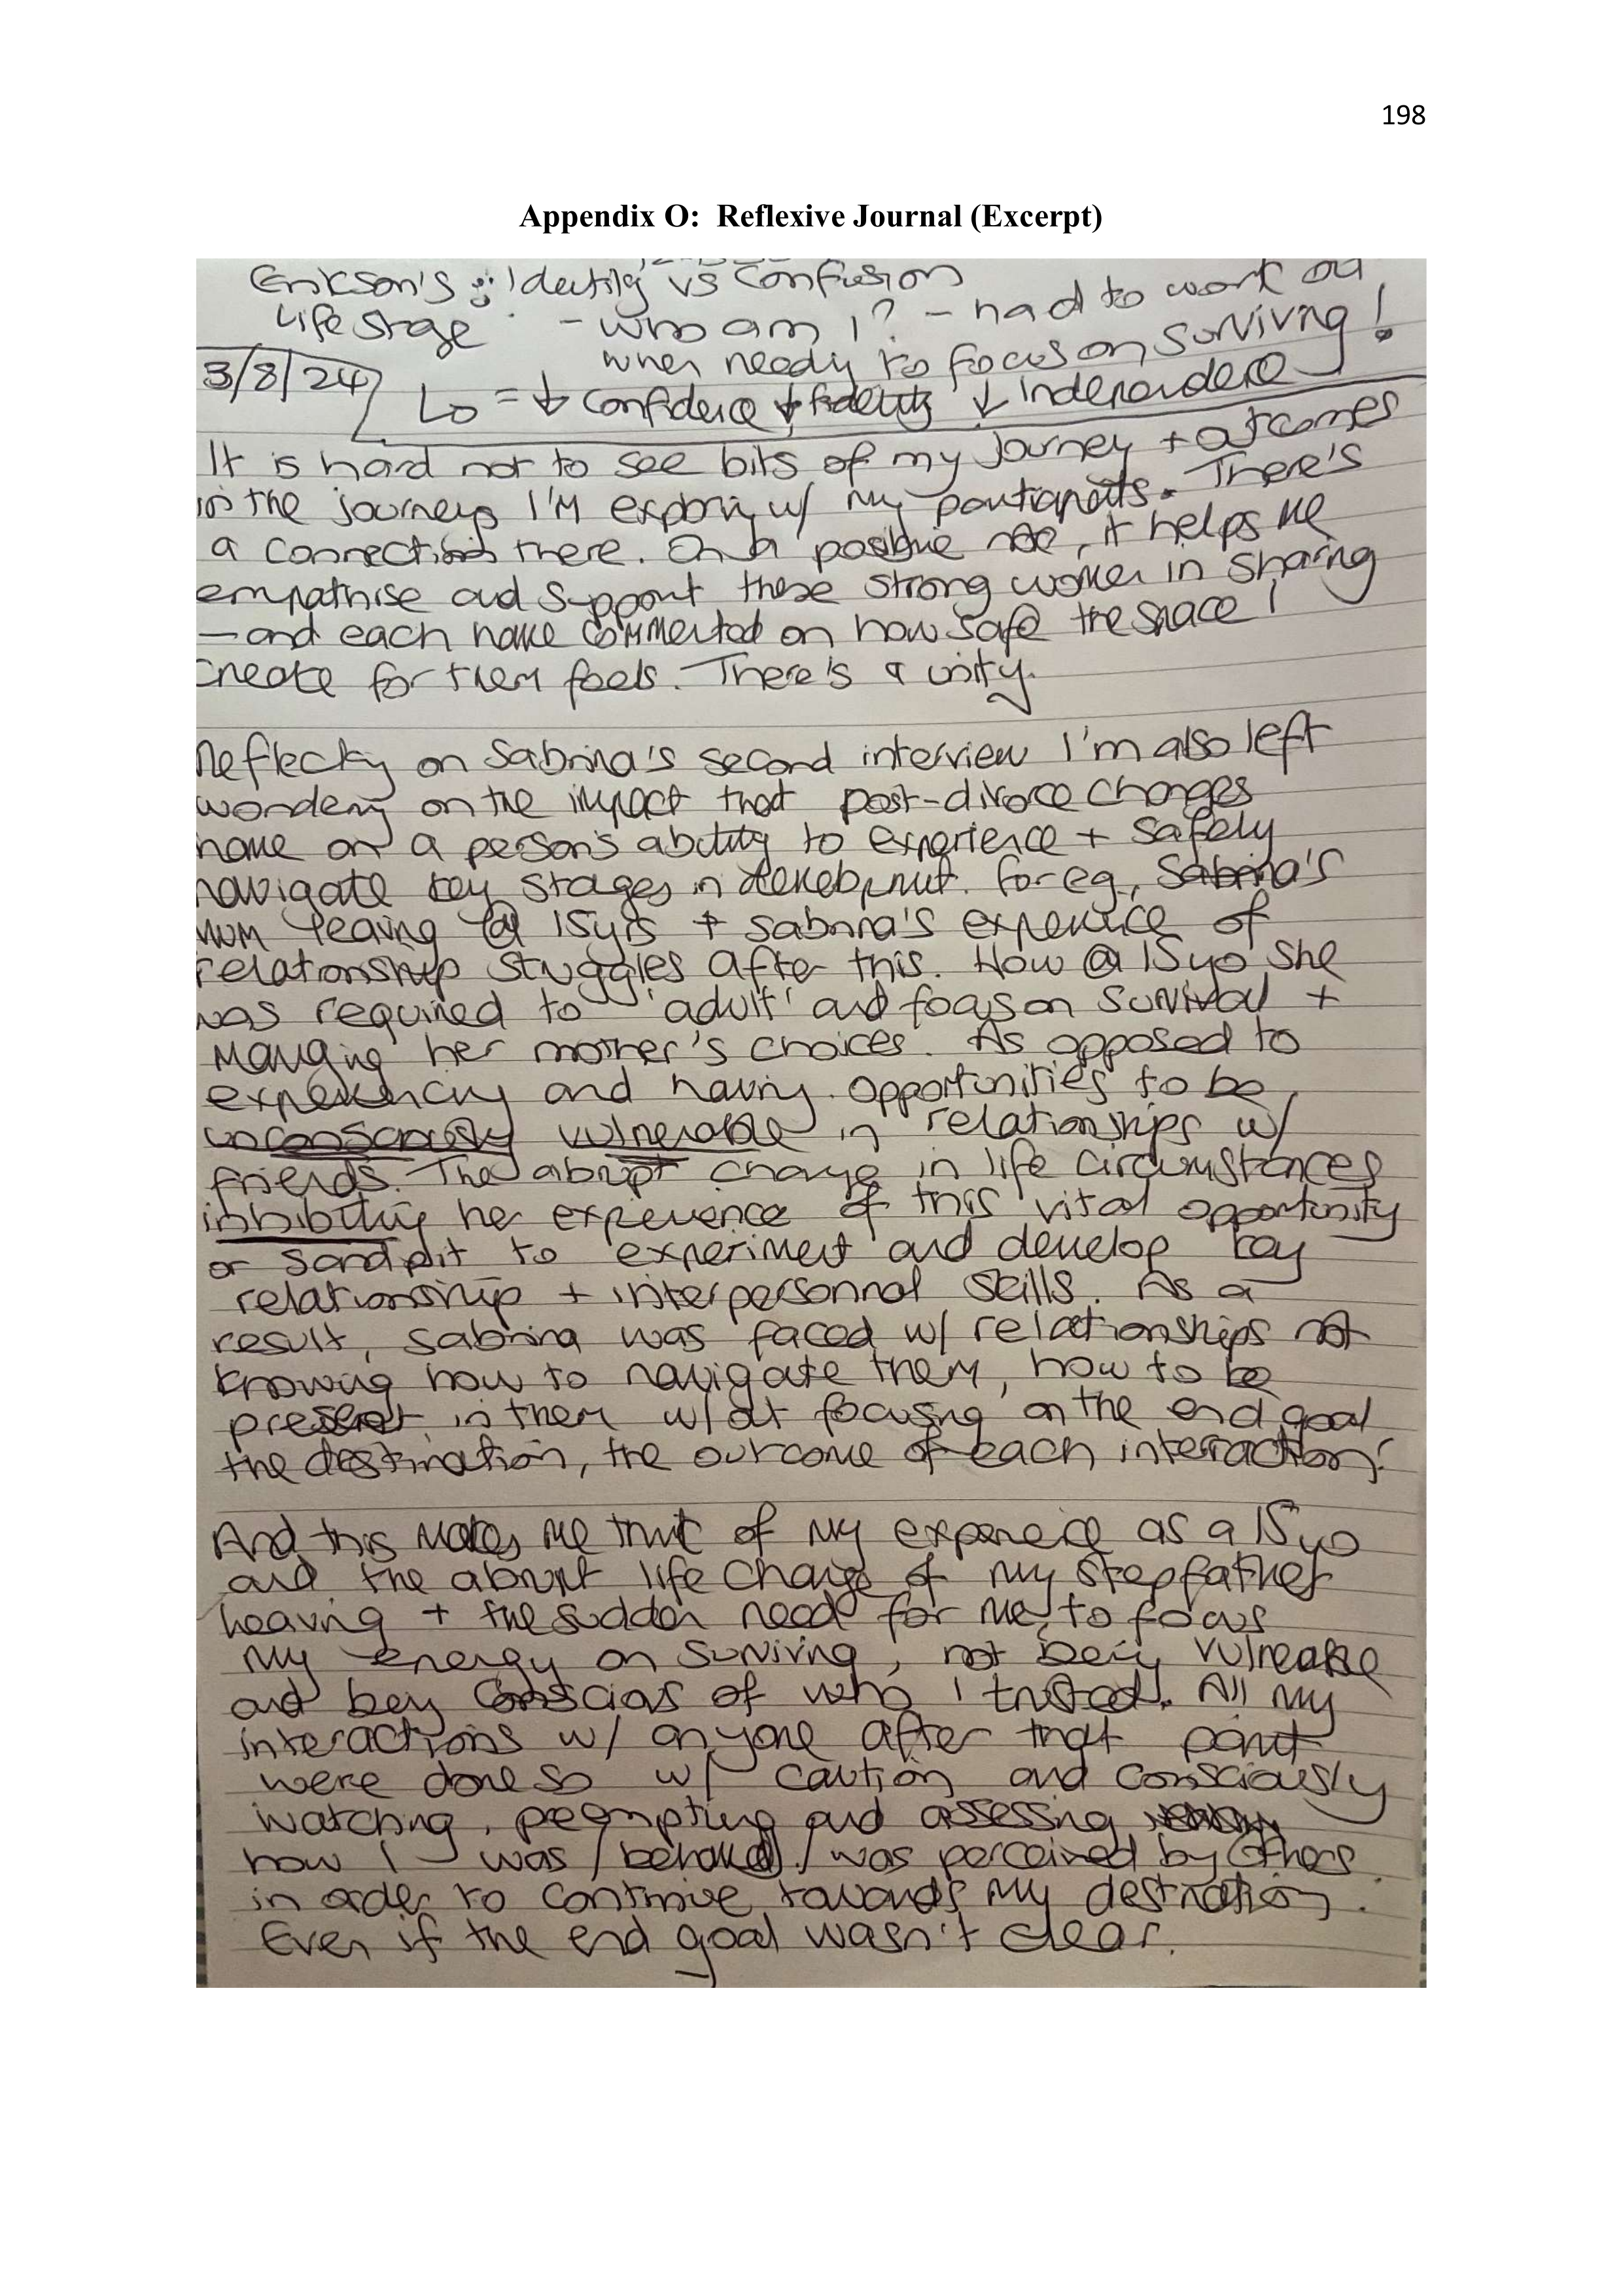 198
Appendix O: Reflexive Journal (Excerpt)
Erikson's : Identity vs Confusion
Life stage - who am I? - had to work out
when needing to focus on surviving!
3/8/24
↳ = ↓ confidence ↓ fidelity ↓ independence
It is hard not to see bits of my journey + outcomes
in the journeys I'm exploring w/ my participants. There's
a connection there. On a positive note, it helps me
empathise and support these strong women in sharing
- and each have commented on how safe the space I
create for them feels. There's a unity.
Reflecting on Sabrina's second interview I'm also left
wondering on the impact that post-divorce changes
have on a person's ability to experience + safely
navigate key stages in development. For eg, Sabrina's
mum leaving @ 15yrs + Sabrina's experience of
relationship struggles after this. How @ 15yo she
was required to 'adult' and focus on survival +
managing her mother's choices. As opposed to
experiencing and having opportunities to be
unconsciously vulnerable in relationships w/
friends. The abrupt change in life circumstances
inhibiting her experience of this vital opportunity
or sandpit to experiment and develop key
relationship + interpersonnal skills. As a
result, Sabrina was faced w/ relationships not
knowing how to navigate them, how to be
present in them w/out focusing on the end goal
the destination, the outcome of each interaction.
And this makes me think of my experience as a 15yo
and the abrupt life change of my stepfather
leaving + the sudden need for me to focus
my energy on surviving, not being vulnerable
and being conscious of who I trusted. All my
interactions w/ anyone after that point
were done so w/ caution and consciously
watching, preempting and assessing
how I was / behaved / was perceived by others
in order to continue towards my destination.
Even if the end goal wasn't clear.